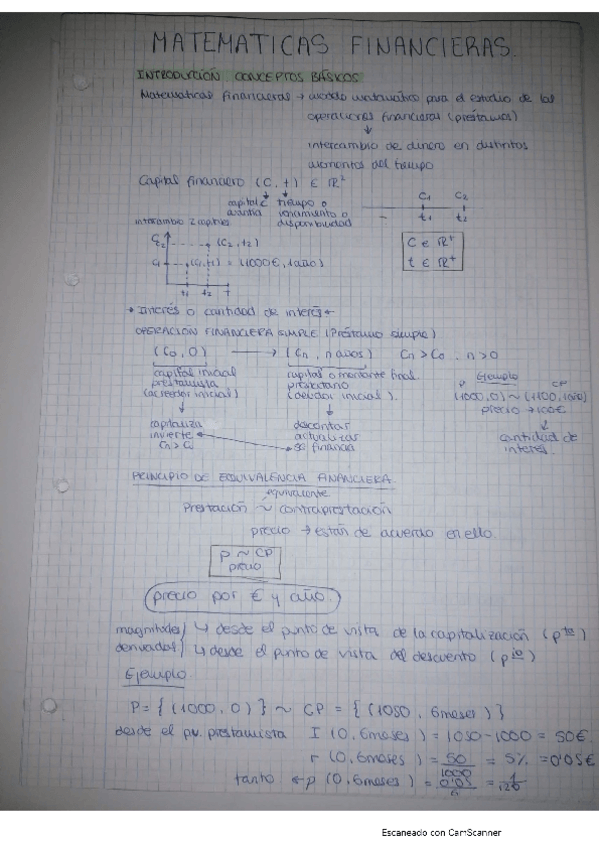 MATEMATICAS FINANCIERAS.
INTRODUCCIÓN CONCEPTOS BÁSICOS
Matematicas financieras → modelo matemático para el estudio de las
operaciones financieras (préstamos)
↓
intercambio de dinero en distintos
momentos del tiempo
Capital financiero (C, t) ∈ ℝ²
capital tiempo o
cuantía vencimiento o
disponibilidad
C₁ C₂
t₁ t₂
intercambio 2 capitales
C₂ (C₂, t₂)
C₁ (C₁, t₁) = (1000€, 1 año)
t₁ t₂ T
C ∈ ℝ⁺
t ∈ ℝ⁺
* Interés o cantidad de interés ←
OPERACIÓN FINANCIERA SIMPLE (Préstamo simple)
(C₀, 0) → (Cn, n años) Cn > C₀ . n > 0
capital inicial
prestamista
(acreedor inicial)
↓
capitaliza
invierte
capital o montante final
prestatario
(deudor inicial).
↓
descontar
actualizar
se financia
Ejemplo
P CP
(1000, 0) ~ (1100, )
precio → 100€
↓
cantidad de
interés.
PRINCIPIO DE EQUIVALENCIA FINANCIERA.
equivalente
Prestación ~ contraprestación
precio → están de acuerdo en ello.
P ~ CP
precio
precio por € y año.
magnitudes ↳ desde el punto de vista de la capitalización (p^to)
derivadas ↳ desde el punto de vista del descuento (p^io)
Ejemplo
P = { (1000, 0) } ~ CP = { (1050, 6 meses) }
desde el pv. prestamista I (0, 6 meses) = 1050 - 1000 = 50€.
r (0, 6 meses) = 50/1000 = 5% = 0'05€
tanto ← p (0, 6 meses) = 0'05/6 =
Escaneado con CamScanner